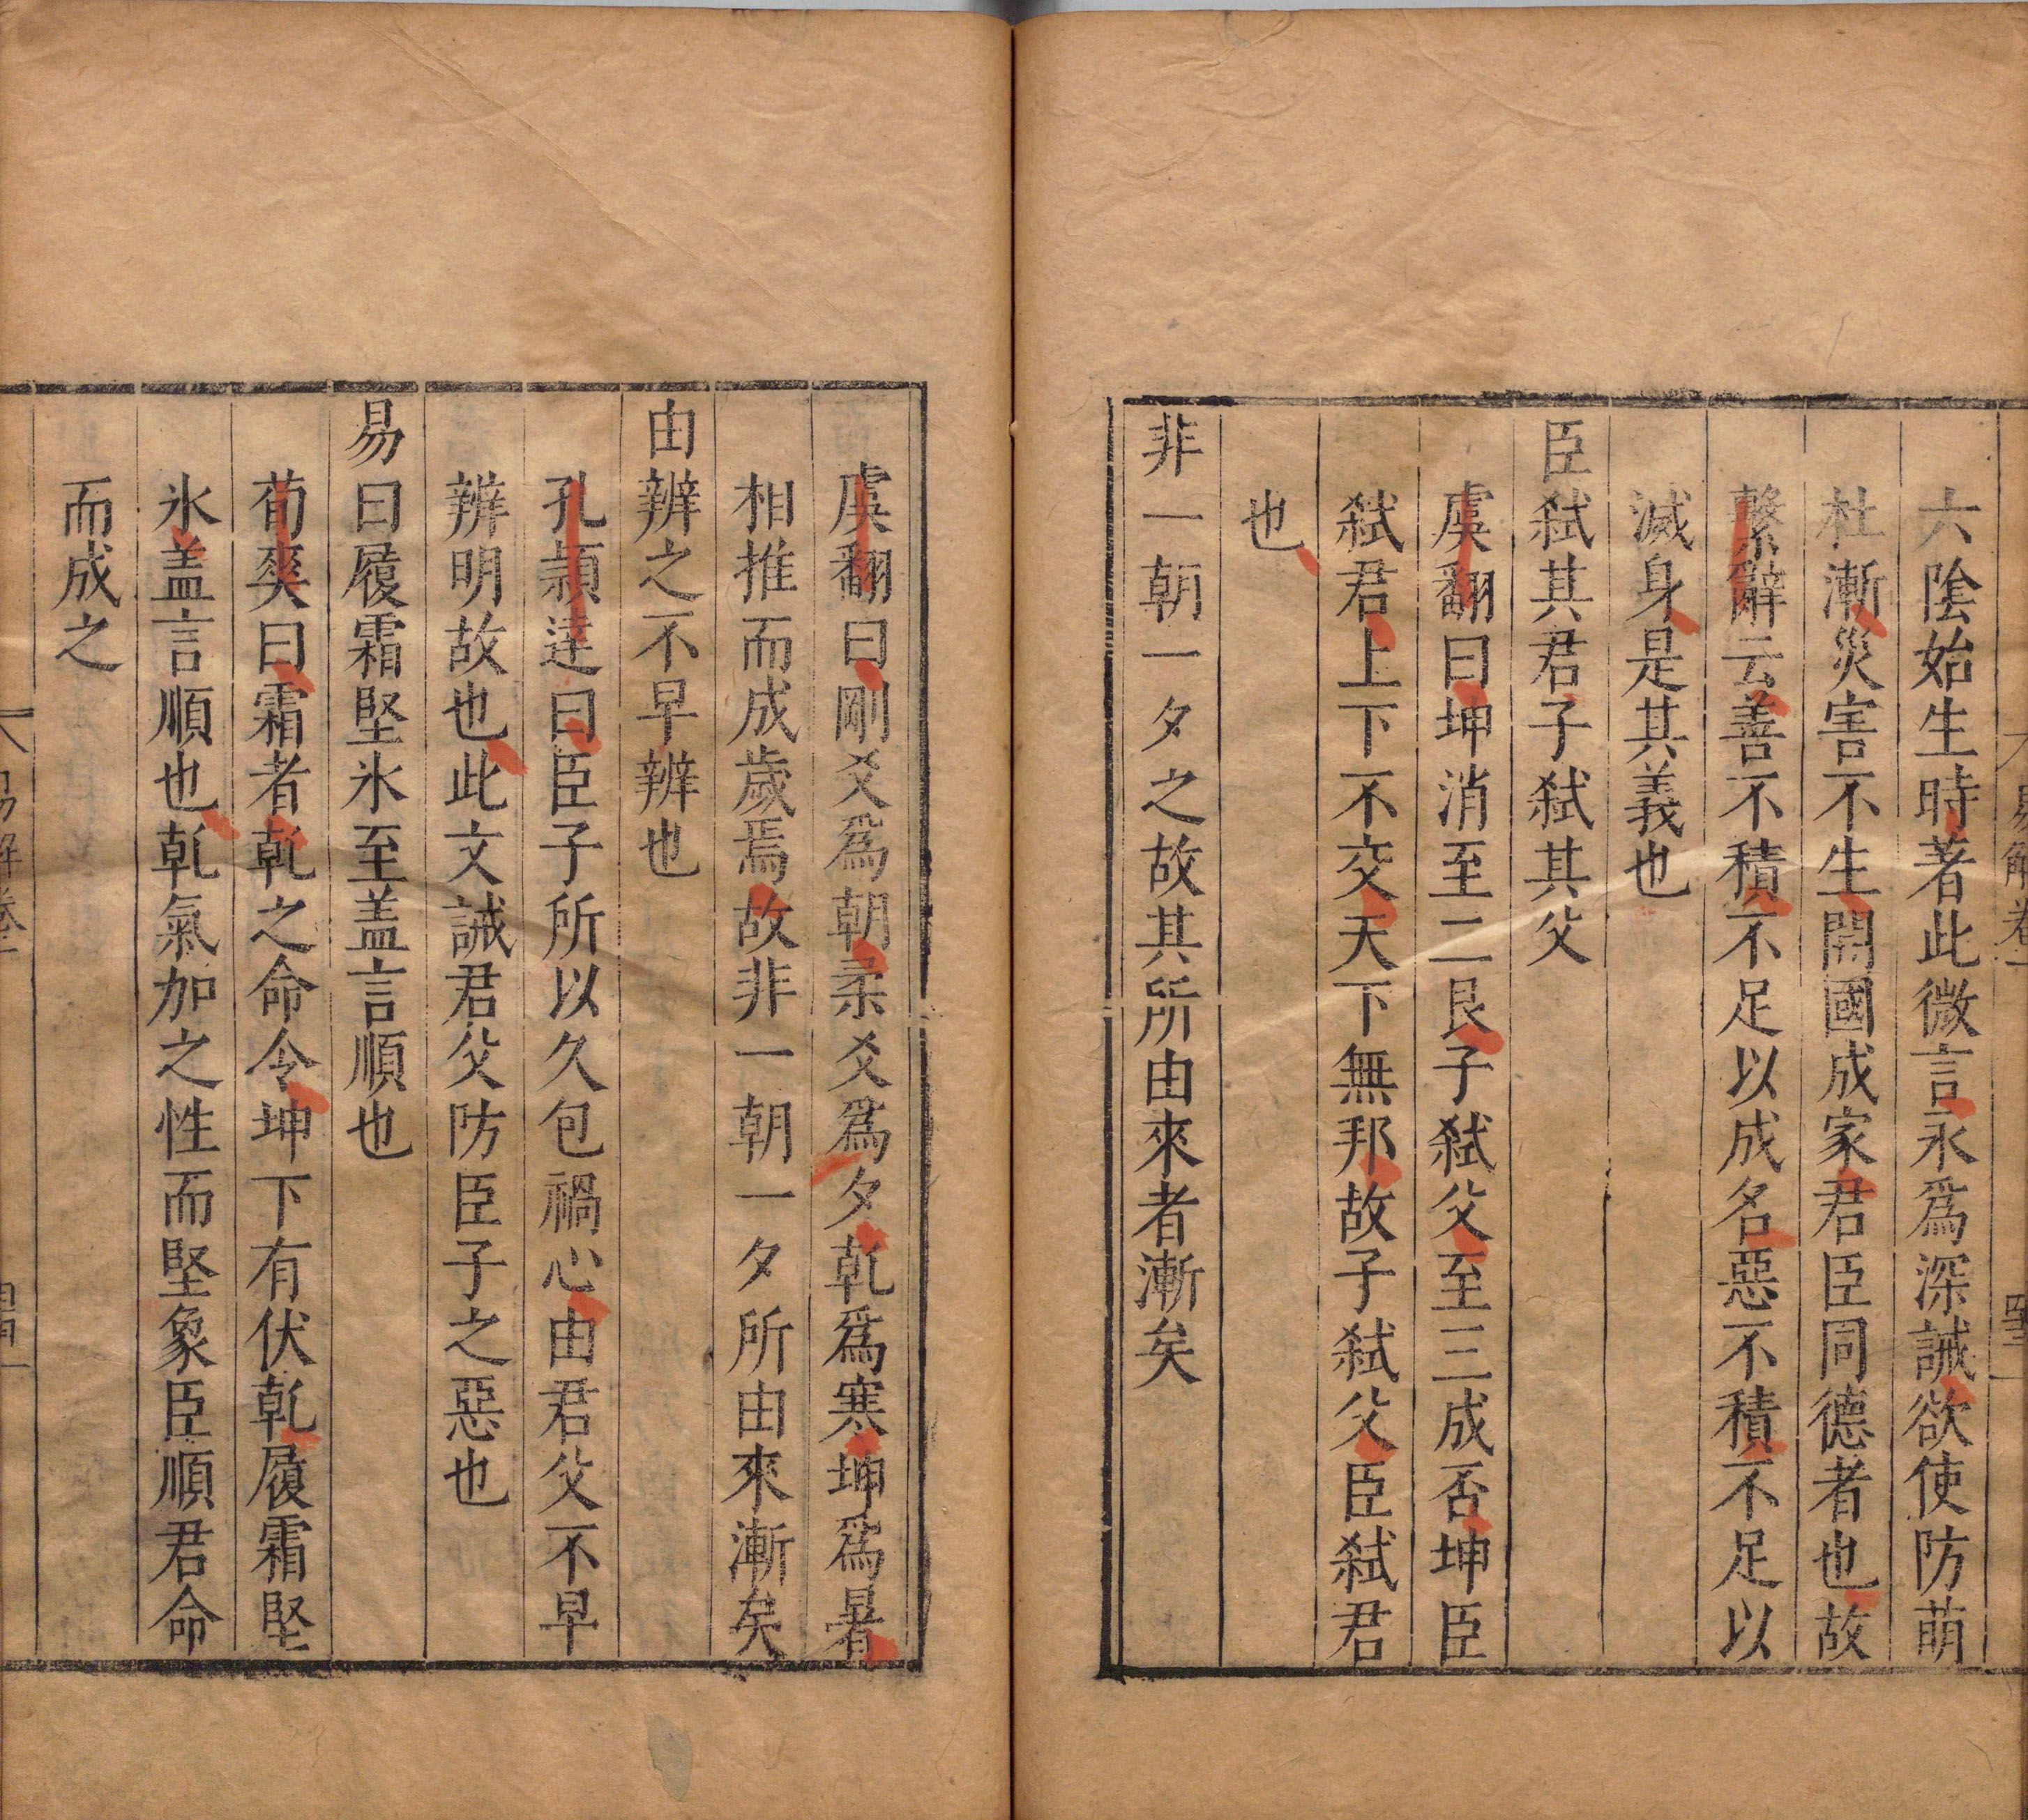 六陰始生時著此微言永爲深誡欲使防萌
杜漸災害不生開國成家君臣同德者也故
繫辭云善不積不足以成名惡不積不足以
滅身是其義也
臣弑其君子弑其父
虞翻曰坤消至二艮子弑父至三成否坤臣
弑君上下不交天下無邦故子弑父臣弑君
也
非一朝一夕之故其所由來者漸矣
虞翻曰剛爻爲朝柔爻爲夕乾爲寒坤爲暑
相推而成歲焉故非一朝一夕所由來漸矣
由辨之不早辨也
孔穎達曰臣子所以久包禍心由君父不早
辨明故也此文誡君父防臣子之惡也
易曰履霜堅氷至盖言順也
荀爽曰霜者乾之命令坤下有伏乾履霜堅
氷盖言順也乾氣加之性而堅象臣順君命
而成之